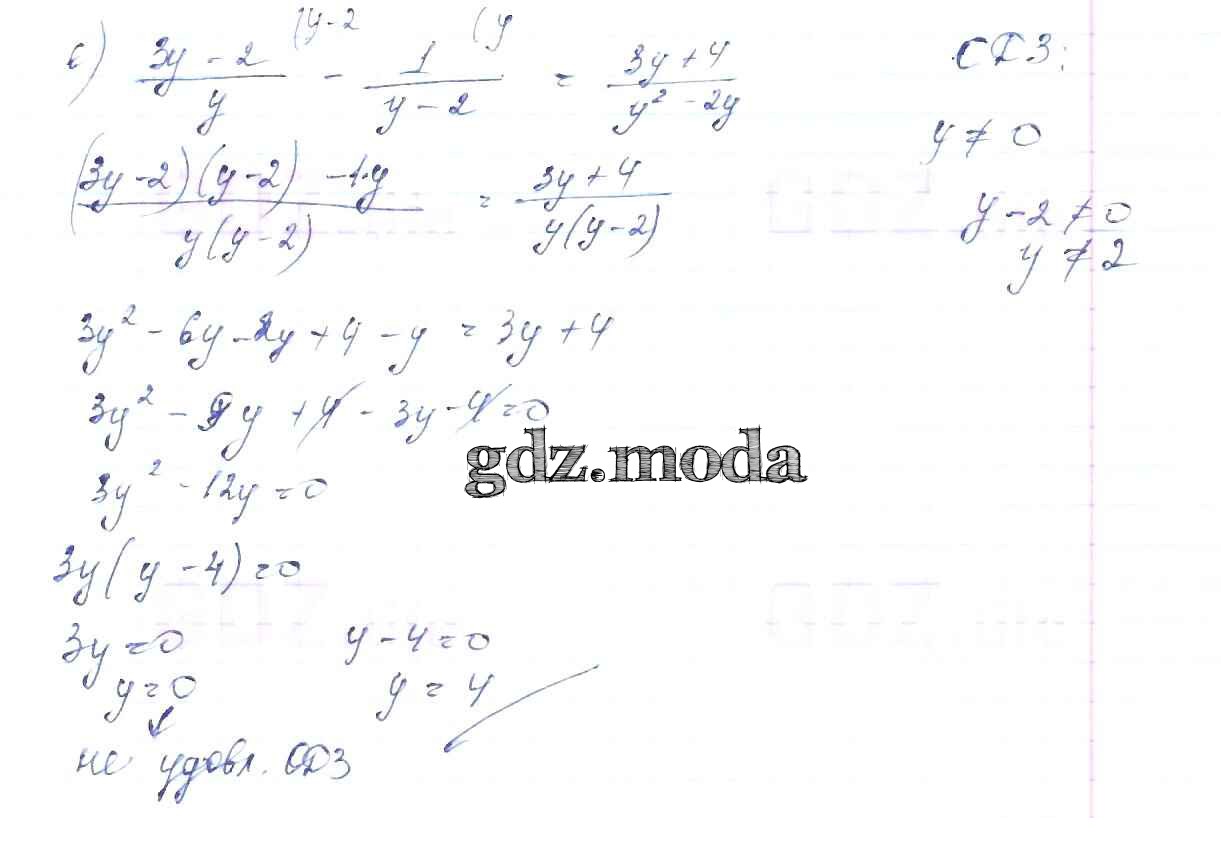 в) (3y - 2)/y (y-2 - 1/(y - 2) (y = (3y + 4)/(y² - 2y)
ОДЗ:
y ≠ 0
y - 2 ≠ 0
y ≠ 2
((3y - 2)(y - 2) - 1·y)/(y(y - 2)) = (3y + 4)/(y(y - 2))
3y² - 6y - 2y + 4 - y = 3y + 4
3y² - 9y + 4 - 3y - 4 = 0
3y² - 12y = 0
3y(y - 4) = 0
3y = 0 y - 4 = 0
y = 0 y = 4
не удовл. ОДЗ
gdz.moda